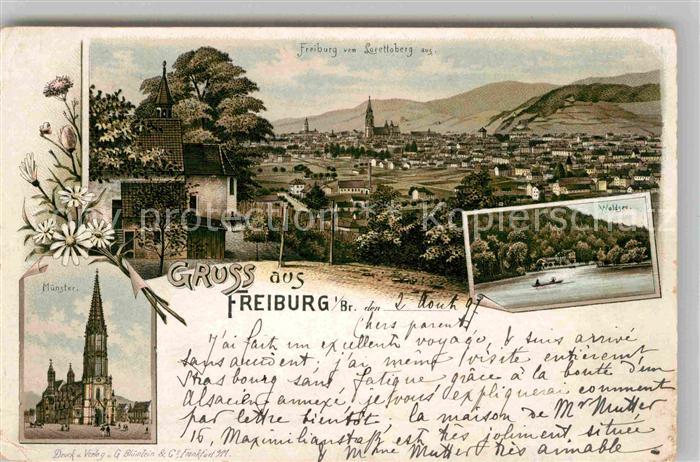 Freiburg vom Lorettoberg aus.
Waldsee.
Münster.
GRUSS aus
FREIBURG i/Br. den 2 Août 97
Chers parents
J'ai fait un excellent voyage, & suis arrivé
sans accident; j'ai même visité entièrement
Strasbourg sans fatigue grâce à la bonté d'un
Alsacien annexé, je vous expliquerai comment
par lettre bientôt. la maison de Mr Mutter
16, Maximilianstraß est très joliment située
Mme Mutter très aimable
Druck u. Verlag v. G. Blümlein & Co. Frankfurt a/M.
Copyright-protection Kopierschutz